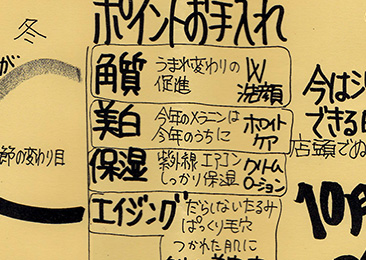 冬
が
節の変わり目
ポイントお手入れ
角質
うまれ変わりの
促進
W
洗顔
美白
今年のメラニンは
今年のうちに
ホワイト
ケア
保湿
紫外線 エアコン
しっかり保湿
クリーム
ローション
エイジング
だらしないたるみ
ぱっくり毛穴
つかれた肌に
今は
できる
店頭でぬ
10